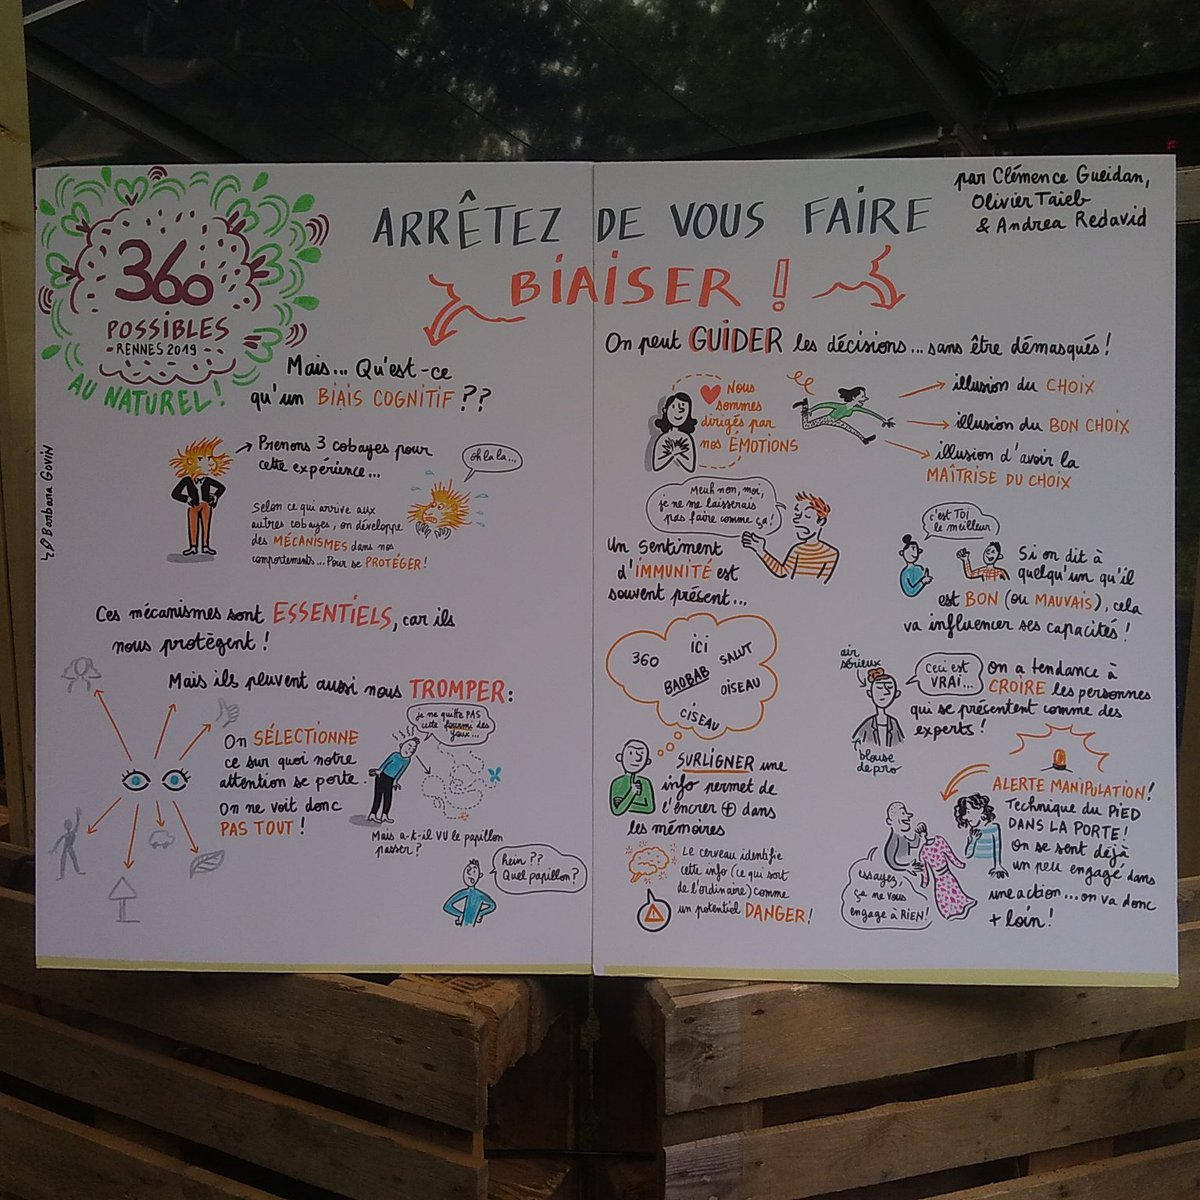 360
POSSIBLES
- RENNES 2019 -
AU NATUREL !
ARRÊTEZ DE VOUS FAIRE
BIAISER !
par Clémence Gueidan,
Olivier Taieb
& Andrea Redavid
Barbara Govin
Mais... Qu'est-ce
qu'un BIAIS COGNITIF ??
Prenons 3 cobayes pour
cette expérience...
oh la la...
Selon ce qui arrive aux
autres cobayes, on développe
des MÉCANISMES dans nos
comportements... Pour se PROTÉGER !
Ces mécanismes sont ESSENTIELS, car ils
nous protègent !
Mais ils peuvent aussi nous TROMPER :
On SÉLECTIONNE
ce sur quoi notre
attention se porte.
On ne voit donc
PAS TOUT !
je ne quitte PAS
cette fourmi des
yeux...
Mais a-t-il VU le papillon
passer ?
hein ??
Quel papillon ?
On peut GUIDER les décisions... sans être démasqués !
Nous
sommes
dirigés par
nos ÉMOTIONS
illusion du CHOIX
illusion du BON CHOIX
illusion d'avoir la
MAÎTRISE DU CHOIX
Meuh non, moi,
je ne me laisserais
pas faire comme ça !
Un sentiment
d'IMMUNITÉ est
souvent présent...
c'est TOI
le meilleur
Si on dit à
quelqu'un qu'il
est BON (ou MAUVAIS), cela
va influencer ses capacités !
360
ici
SALUT
BAOBAB
OISEAU
CISEAU
SURLIGNER une
info permet de
l'encrer + dans
les mémoires
Le cerveau identifie
cette info (ce qui sort
de l'ordinaire) comme
un potentiel DANGER !
air
sérieux
blouse
de pro
Ceci est
VRAI...
On a tendance à
CROIRE les personnes
qui se présentent comme des
experts !
ALERTE MANIPULATION !
Technique du PIED
DANS LA PORTE !
On se sent déjà
un peu engagé dans
une action... on va donc
+ loin !
essayez,
ça ne vous
engage à RIEN !